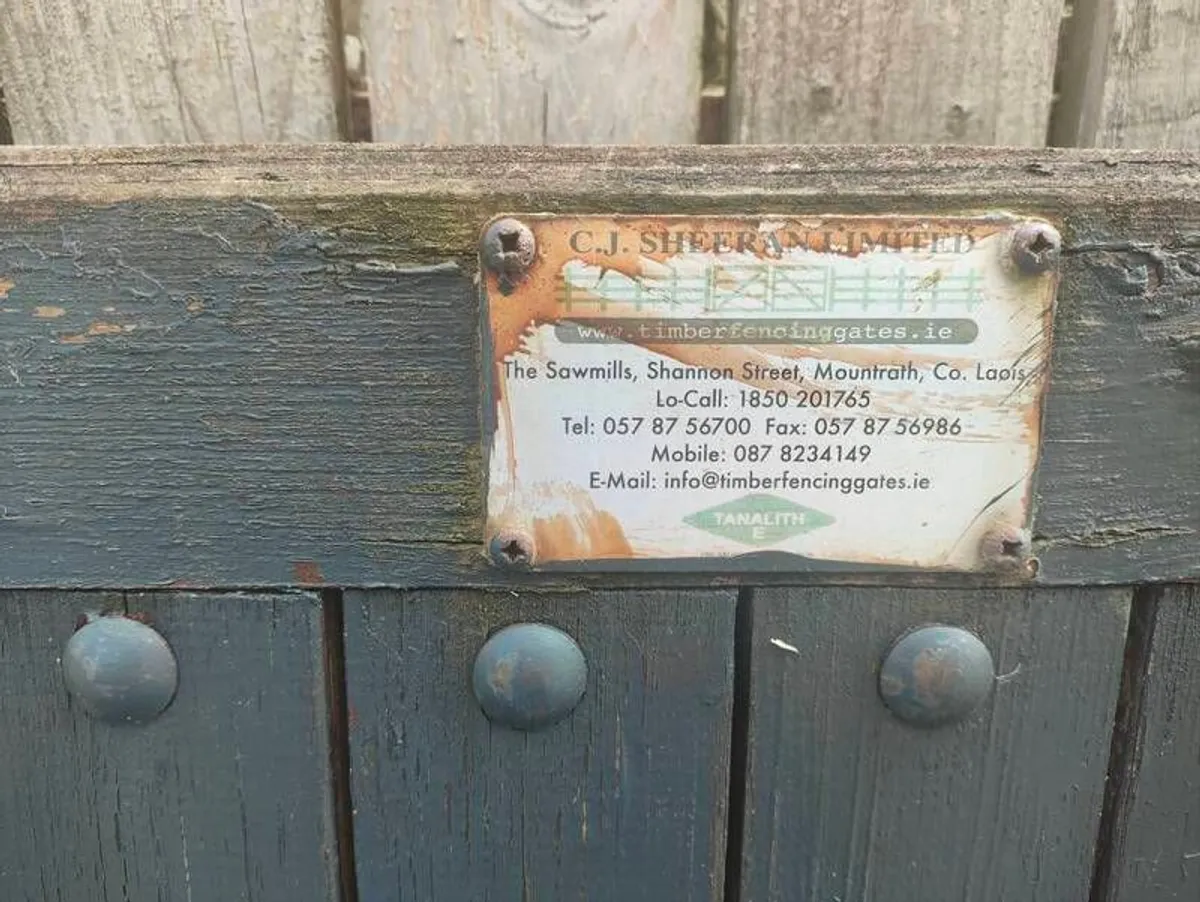 C.J. SHEERAN LIMITED
www.timberfencinggates.ie
The Sawmills, Shannon Street, Mountrath, Co. Laois
Lo-Call: 1850 201765
Tel: 057 87 56700 Fax: 057 87 56986
Mobile: 087 8234149
E-Mail: info@timberfencinggates.ie
TANALITH
E